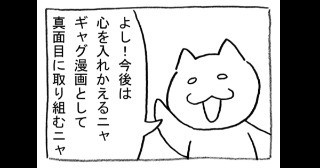 よし！今後は
心を入れかえるニャ
ギャグ漫画として
真面目に取り組むニャ